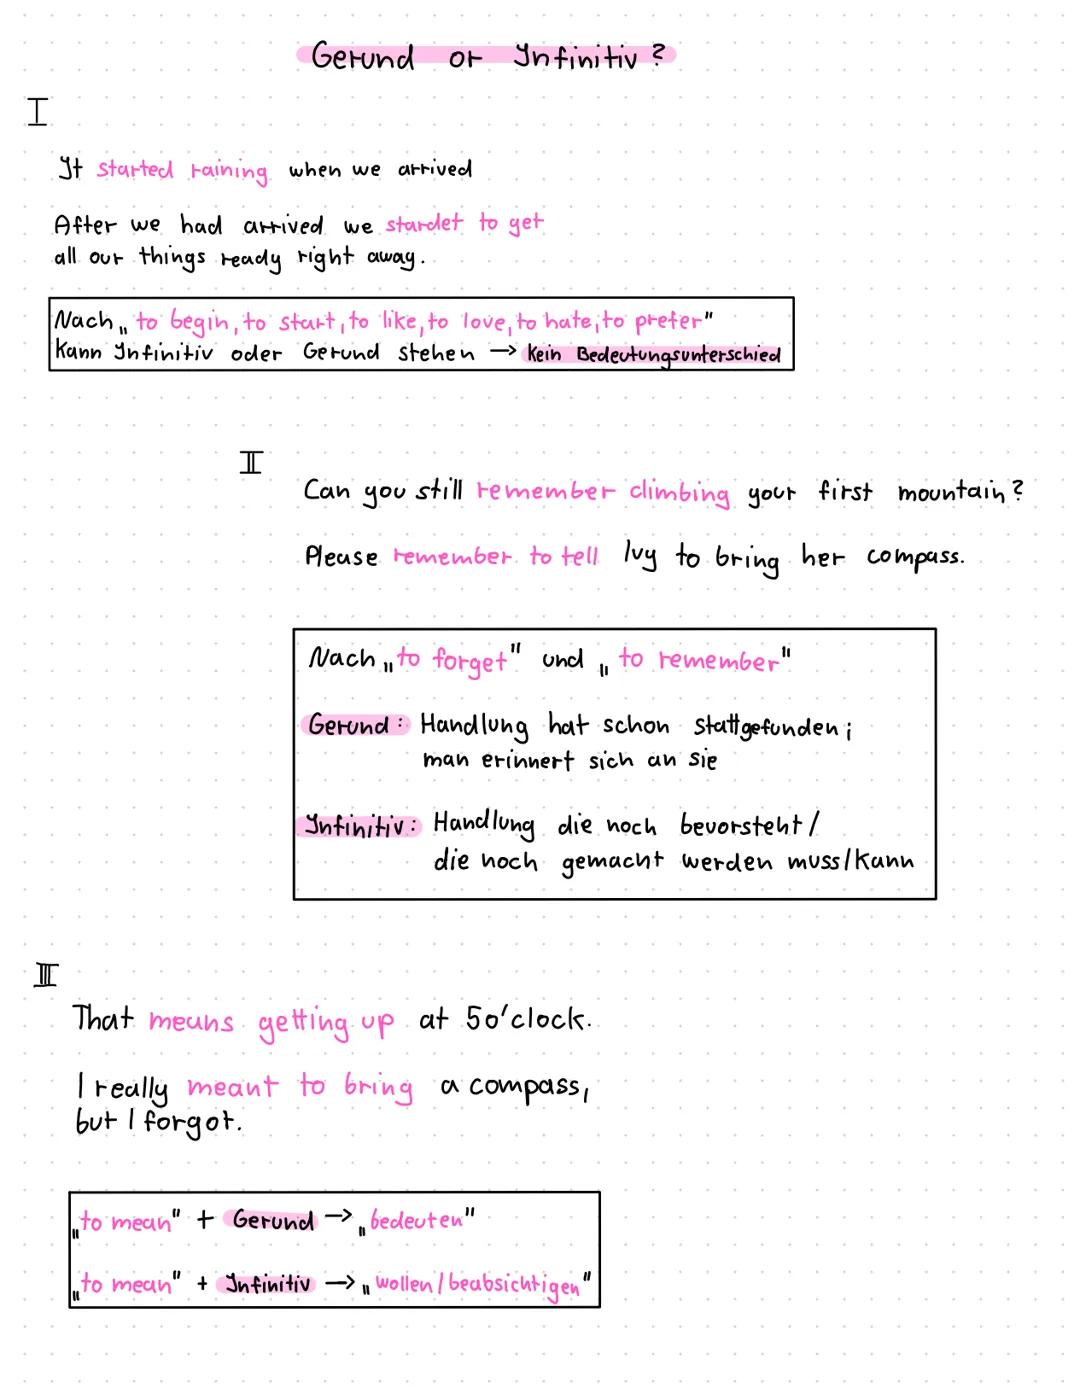 Gerund or Infinitiv?
I
It started raining when we arrived
After we had arrived we stardet to get
all our things ready right away.
Nach „to begin, to start, to like, to love, to hate, to prefer"
Kann Infinitiv oder Gerund stehen → Kein Bedeutungsunterschied
II
Can you still remember climbing your first mountain?
Please remember to tell Ivy to bring her compass.
Nach „to forget" und „to remember"
Gerund: Handlung hat schon stattgefunden;
man erinnert sich an sie
Infinitiv: Handlung die noch bevorsteht/
die noch gemacht werden muss/kann
III
That means getting up at 5o'clock.
I really meant to bring a compass,
but I forgot.
„to mean" + Gerund → „bedeuten"
„to mean" + Infinitiv → „wollen/beabsichtigen"